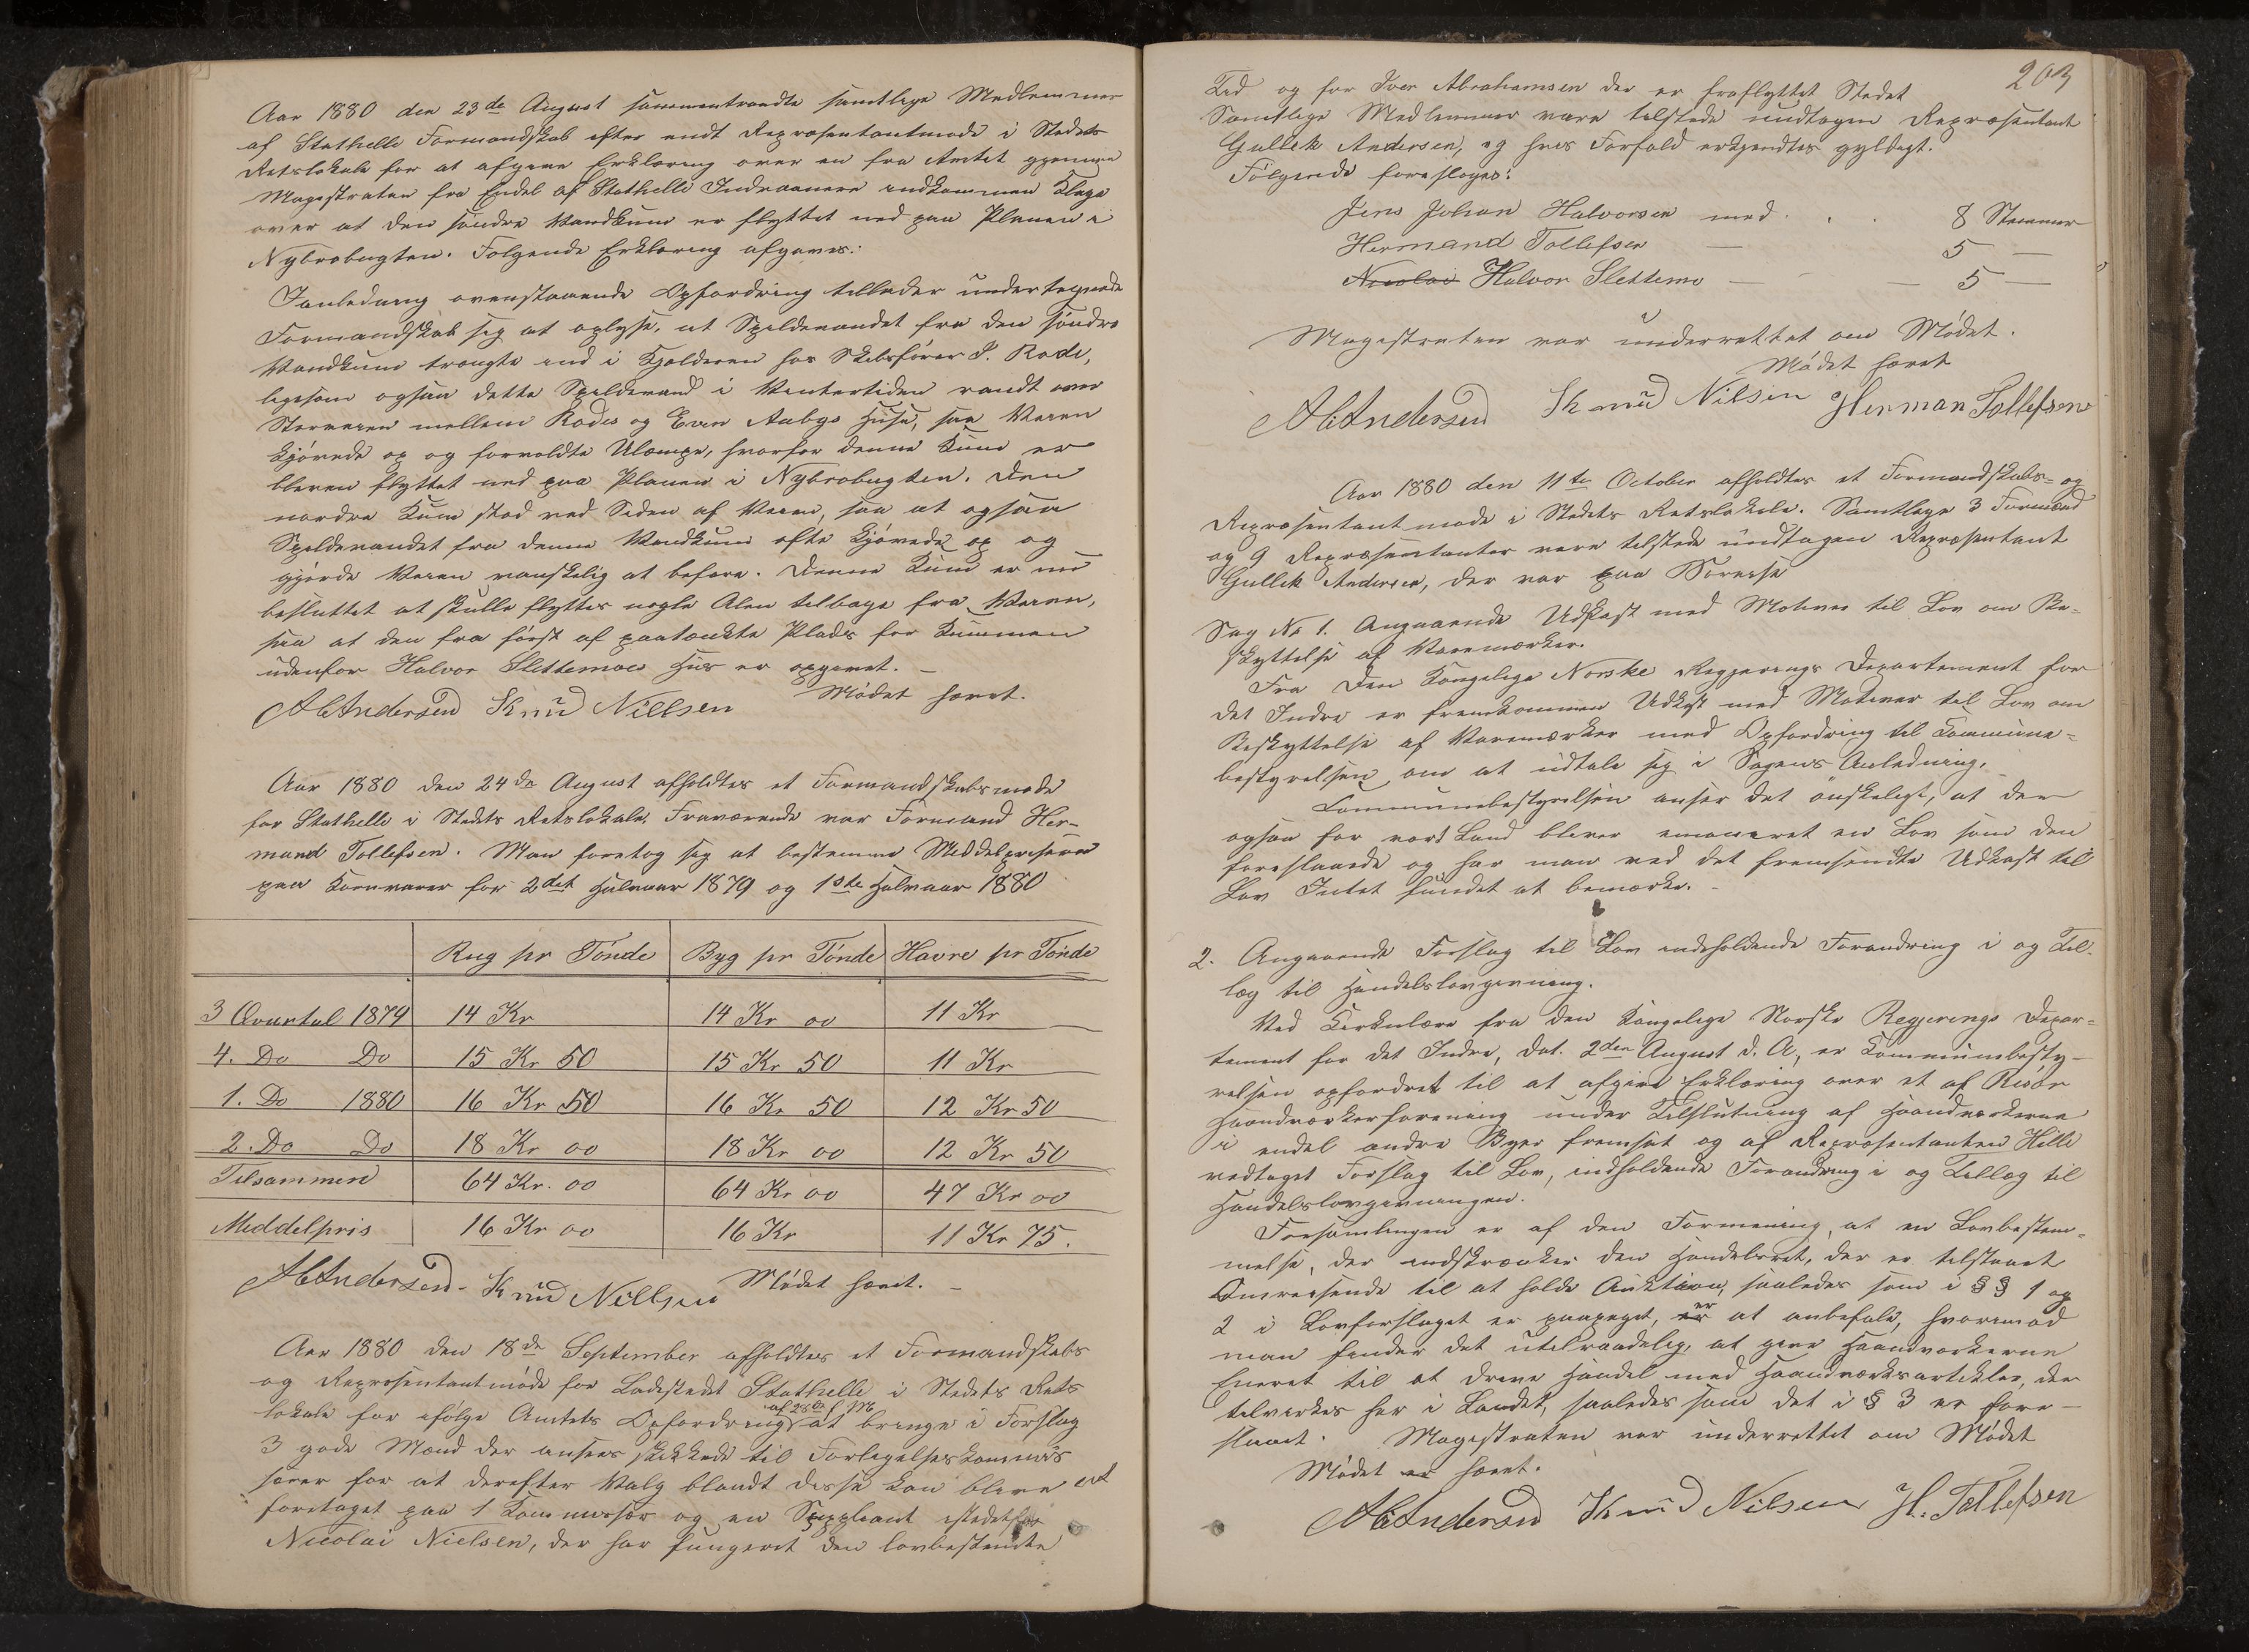 Aar 1880 den 23de August sammentraadte samtlige Medlemmer
af Stathelle Formandskab efter endt Repræsentantmøde i Stedets
Retslokale for at afgive Erklæring over en fra Amtet gjennem
Magistraten fra Endel af Stathelle Indvaanere indkommen Klage
over at den søndre Vandkum er flyttet ned paa Planen i
Nybrobugten. Følgende Erklæring afgaves:
I anledning ovenstaaende Opfordring tillader undertegnede
Formandskab sig at oplyse, at Spildevandet fra den søndre
Vandkum trængte ind i Kjelderen hos Skibsfører J. Rode,
ligesom ogsaa dette Spildevand i Vintertiden randt over
Storveien mellem Rodes og Even Aabys Huse, saa Veien
kjøvede op og forvoldte Ulæmpe, hvorfor denne Kum er
bleven flyttet ned paa Planen i Nybrobugten. Den
nordre Kum stod ved Siden af Veien, saa at ogsaa
Spildevandet fra denne Vandkum ofte kjøvede op og
gjorde Veien vanskelig at befare. Denne Kum er nu
besluttet at skulle flyttes nogle Alen tilbage fra Veien,
saa at den fra først af paatænkte Plads for Kummen
udenfor Halvor Slettemoes Hus er opgivet. –
Mødet hævet.
AbAndersen Knud Nillsen
Aar 1880 den 24de August afholdtes et Formandskabsmøde
for Stathelle i Stedets Retslokale. Fraværende var Formand Her-
mand Tollefsen. Man foretog sig at bestemme Middelpriserne
paa Kornvarer for 2det Halvaar 1879 og 1ste Halvaar 1880
Rug pr Tönde Byg pr Tönde Havre pr Tönde
3 Qvartal 1879 14 Kr 14 Kr 00 11 Kr
4. Do Do 15 Kr 50 15 Kr 50 11 Kr
1. Do 1880 16 Kr 50 16 Kr 50 12 Kr 50
2. Do Do 18 Kr 00 18 Kr 00 12 Kr 50
Tilsammen 64 Kr. 00 64 Kr 00 47 Kr 00
Middelpris 16 Kr 00 16 Kr 11 Kr 75.
AbAndersen - Knud Nillsen Mødet hævet. –
Aar 1880 den 18de September afholdtes et Formandskabs
og Repræsentantmøde for Ladestedet Stathelle i Stedets Rets
lokale for ifølge Amtets Opfordring af 28de f M at bringe i Forslag
3 gode Mænd der ansees skikkede til Forligelseskommis
særer for at derefter Valg blandt disse kan blive
foretaget paa 1 Kommissær og en Suppleant istedetfor
Nicolai Nielsen, der har fungeret den lovbestemte
203
Tid og for Iver Abrahamsen der er fraflyttet Stedet
Samtlige Medlemmer vare tilstede undtagen Repræsentant
Gullek Andersen, og hvis Forfald erkjendtes gyldigt.
Følgende foresloges:
Jens Johan Halvorsen med . . 8 Stemmer
Hermand Tollefsen — 5 —
Nicolai Halvor Slettemo — — 5 —
Magistraten var underrettet om Mødet.
Mødet hævet
AbAndersen Knud Nilsen Herman Tollefsen
Aar 1880 den 11te October afholdtes et Formandskabs= og
Repræsentantmøde i Stedets Retslokale. Samtlige 3 Formænd
og 9 Repræsentanter vare tilstede undtagen Repræsentant
Gullek Andersen, der var paa Söreise
Sag No 1. Angaaende Udkast med Motiver til Lov om Be=
skyttelse af Varemærker.
Fra Den Kongelige Norske Regjerings Departement for
det Indre er fremkommen Udkast med Motiver til Lov om
Beskyttelse af Varemærker med Opfordring til Kommune=
bestyrelsen om at udtale sig i Sagens Anledning.
Communebestyrelsen anser det ønskeligt, at der
ogsaa for vort Land bliver emaneret en Lov som den
foreslaaede og har man ved det fremsendte Udkast til
Lov Intet fundet at bemærke. -
2. Angaaende Forslag til Lov indeholdende Forandring i og Til-
læg til Handelslovgivning.
Ved Cirkulære fra den Kongelige Norske Regjerings Depar=
tement for det Indre, dat. 2den August d. A., er Kommunebesty-
relsen opfordret til at afgive Erklæring over et af Risør
Haandværkerforening under Tilslutning af Haandværkerne
i endel andre Byer fremsat og af Repræsentanten Hille
vedtaget Forslag til Lov, indholdende Forandring i og Tillæg til
Handelslovgivningen.
Forsamlingen er af den Formening, at en Lovbestem=
melse, der indskrænker den Handelsret, der er tilstaaet
Omreisende til at holde Auktion, saaledes som i § § 1 og
2 i Lovforslaget er paapeget, er at anbefale, hvorimod
man finder det utilraadelig, at give Haandværkerne
Eneret til at drive Handel med Haandværksartikler, der
tilvirkes her i Landet, saaledes som det i § 3 er fore-
slaaet. Magistraten var underrettet om Mødet
Mødet er hævet.
AbAndersen Knud Nilsen H. Tollefsen